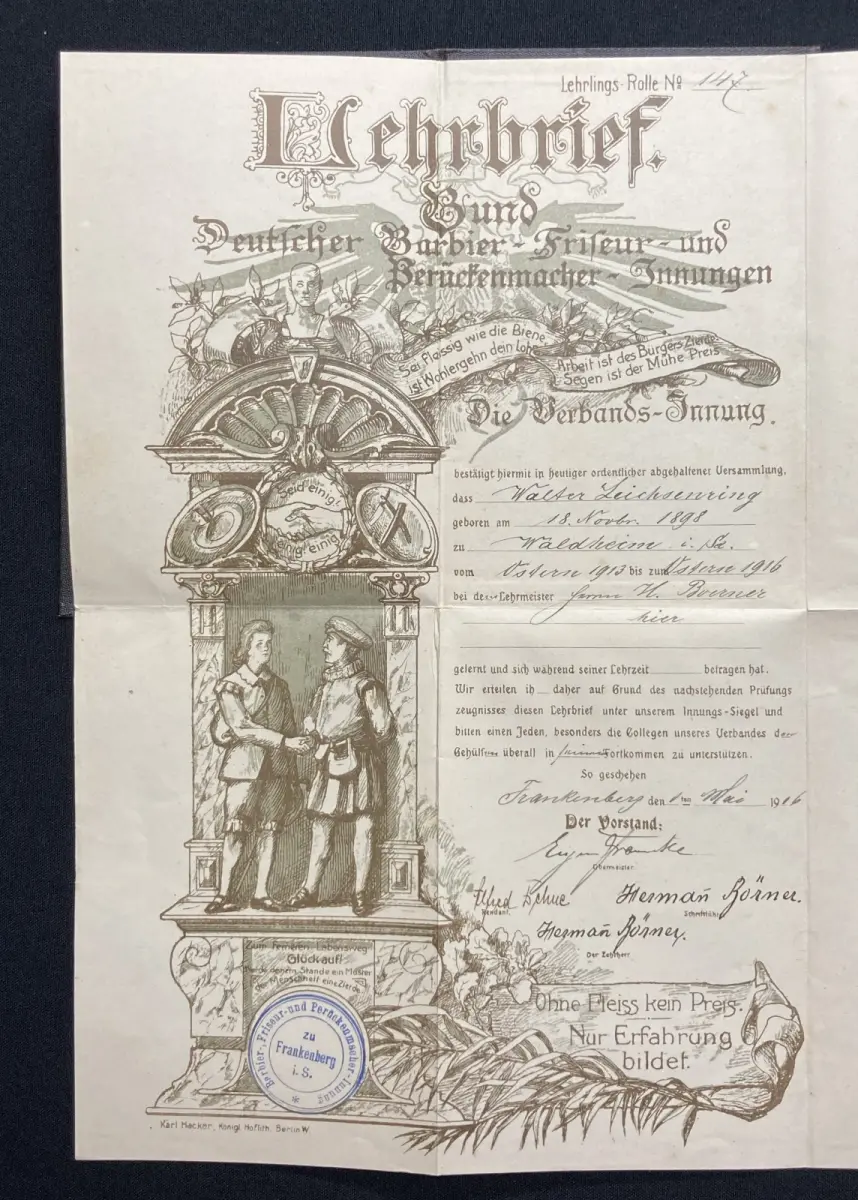 Lehrlings-Rolle № 147
Lehrbrief.
Bund
Deutscher Barbier-Friseur-und
Perückenmacher-Innungen
Sei fleissig wie die Biene,
ist Wohlergehn dein Lohn
Arbeit ist des Bürgers Zierde
Segen ist der Mühe Preis
Die Verbands-Innung.
bestätigt hiermit in heutiger ordentlicher abgehaltener Versammlung,
dass Walter Leichsenring
geboren am 18. Novbr. 1898
zu Waldheim i. Sa.
vom Ostern 1913 bis zum Ostern 1916
bei dem Lehrmeister Herrn H. Boerner
hier
gelernt und sich während seiner Lehrzeit betragen hat.
Wir erteilen ih daher auf Grund des nachstehenden Prüfungs
zeugnisses diesen Lehrbrief unter unserem Innungs-Siegel und
bitten einen Jeden, besonders die Collegen unseres Verbandes den
Gehülfen überall in seinem Fortkommen zu unterstützen.
So geschehen
Frankenberg den 1ten Mai 1916
Der Vorstand:
Obermeister.
Alfred Dehne Hermañ Börner.
Schriftführer
Hermañ Börner.
Der Lehrherr
Seid einig!
einig! einig!
Zum ferneren Lebensweg
Glückauf!
Werde deinem Stande ein Meister
der Menschheit eine Zierde
Barbier-, Friseur-und Perückenmacher-Innung
zu
Frankenberg
i. S.
Ohne Fleiss kein Preis.
Nur Erfahrung
bildet.
Karl Hacker, Königl. Hoflith. Berlin W.